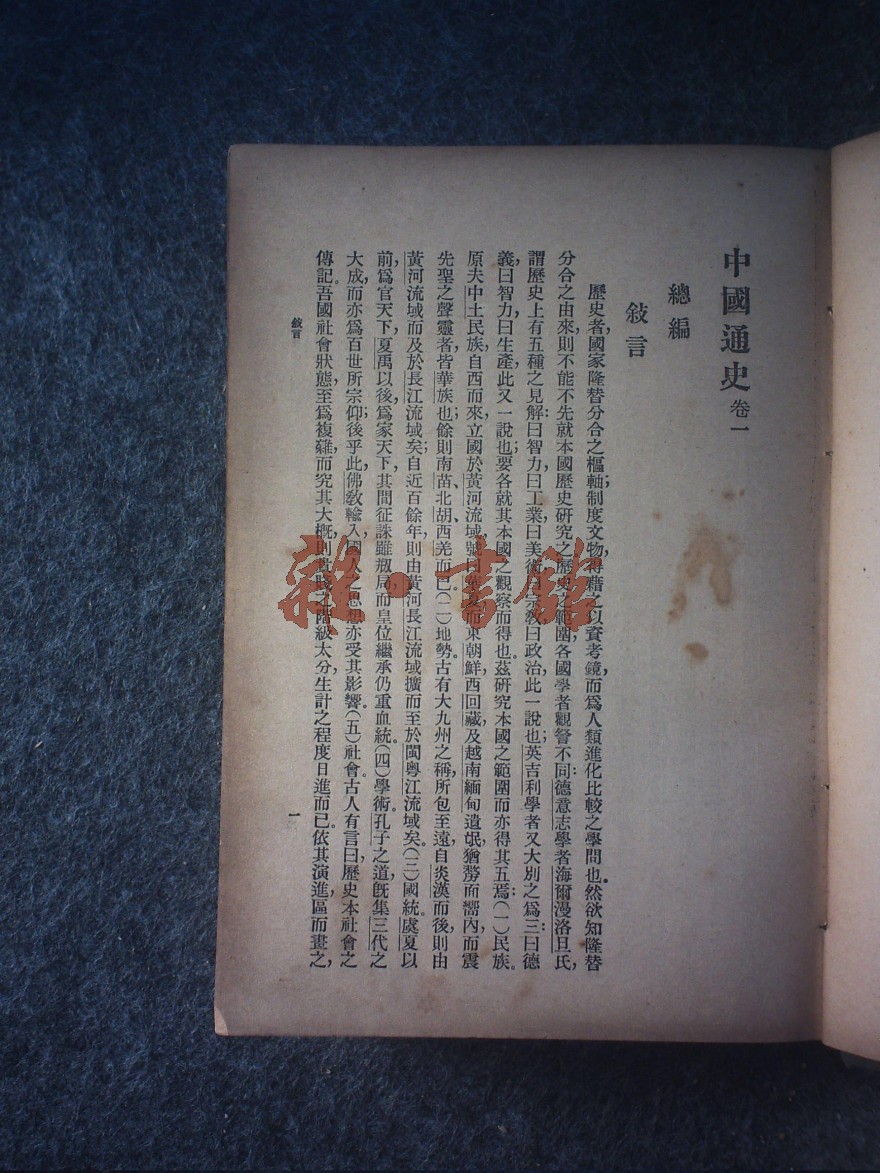 中國通史 卷一
總編
敍言
歷史者，國家隆替分合之樞軸；制度文物，得藉之以資考鏡，而爲人類進化比較之學問也。然欲知隆替
分合之由來，則不能不先就本國歷史研究之。歷史之範圍，各國學者觀詧不同：德意志學者海爾漫洛旦氏，
謂歷史上有五種之見解：曰智力，曰工業，曰美術，曰宗敎，曰政治，此一說也；英吉利學者又大別之爲三：曰德
義，曰智力，曰生產，此又一說也；要各就其本國之觀察而得也。茲研究本國之範圍，而亦得其五焉：（一）民族。
原夫中土民族，自西而來，立國於黃河流域，號曰華夏，而東朝鮮，西回藏，及越南緬甸遺氓，猶剺面嚮內，而震
先聖之聲靈者，皆華族也；餘則南苗、北胡、西羌而已。（二）地勢。古有大九州之稱，所包至遠，自炎漢而後，則由
黃河流域而及於長江流域矣；自近百餘年，則由黃河長江流域擴而至於閩粵江流域矣。（三）國統。虞夏以
前，爲官天下，夏禹以後，爲家天下，其間征誅雖剏局，而皇位繼承仍重血統。（四）學術。孔子之道，旣集三代之
大成，而亦爲百世所宗仰；後乎此，佛敎輸入，國人之思想亦受其影響。（五）社會。古人有言曰，歷史本社會之
傳記。吾國社會狀態，至爲複雜，而究其大概，則貴賤之階級太分，生計之程度日進而已。依其演進，區而畫之，
敍言
一
雜·書館